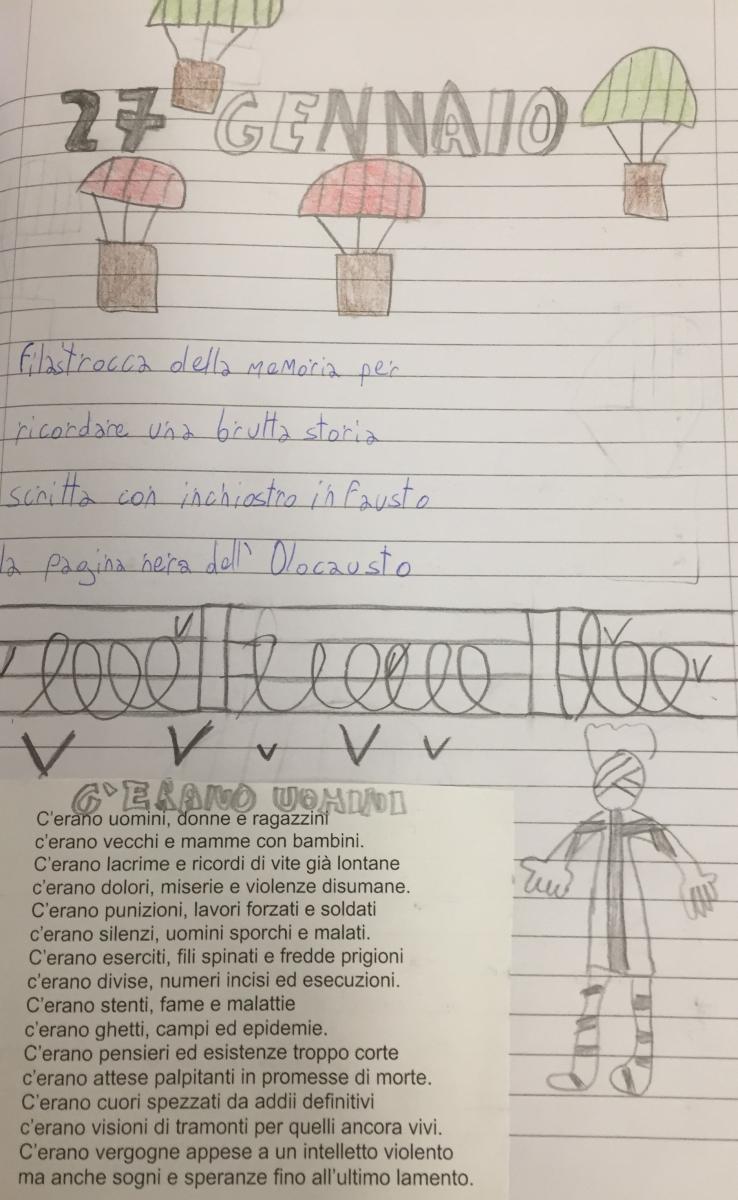 27 GENNAIO
Filastrocca della memoria per
ricordare una brutta storia
scritta con inchiostro infausto
la pagina nera dell' Olocausto
C'ERANO UOMINI
C'erano uomini, donne e ragazzini
c'erano vecchi e mamme con bambini.
C'erano lacrime e ricordi di vite già lontane
c'erano dolori, miserie e violenze disumane.
C'erano punizioni, lavori forzati e soldati
c'erano silenzi, uomini sporchi e malati.
C'erano eserciti, fili spinati e fredde prigioni
c'erano divise, numeri incisi ed esecuzioni.
C'erano stenti, fame e malattie
c'erano ghetti, campi ed epidemie.
C'erano pensieri ed esistenze troppo corte
c'erano attese palpitanti in promesse di morte.
C'erano cuori spezzati da addii definitivi
c'erano visioni di tramonti per quelli ancora vivi.
C'erano vergogne appese a un intelletto violento
ma anche sogni e speranze fino all'ultimo lamento.